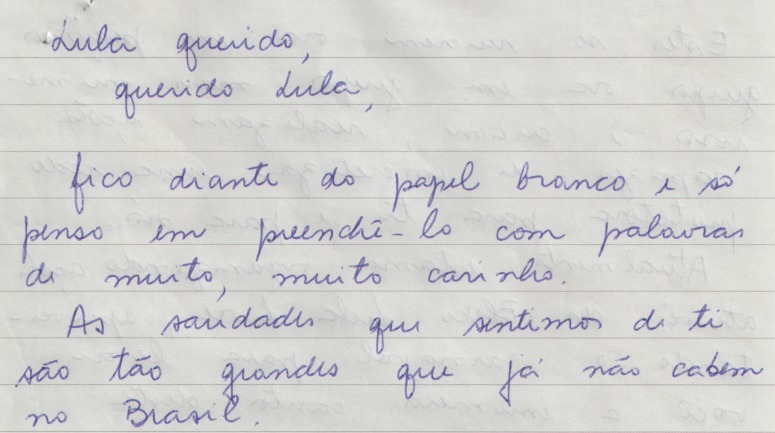 Lula querido,
querido Lula,
fico diante do papel branco e só
penso em preenchê-lo com palavras
de muito, muito carinho.
As saudades que sentimos de ti
são tão grandes que já não cabem
no Brasil.